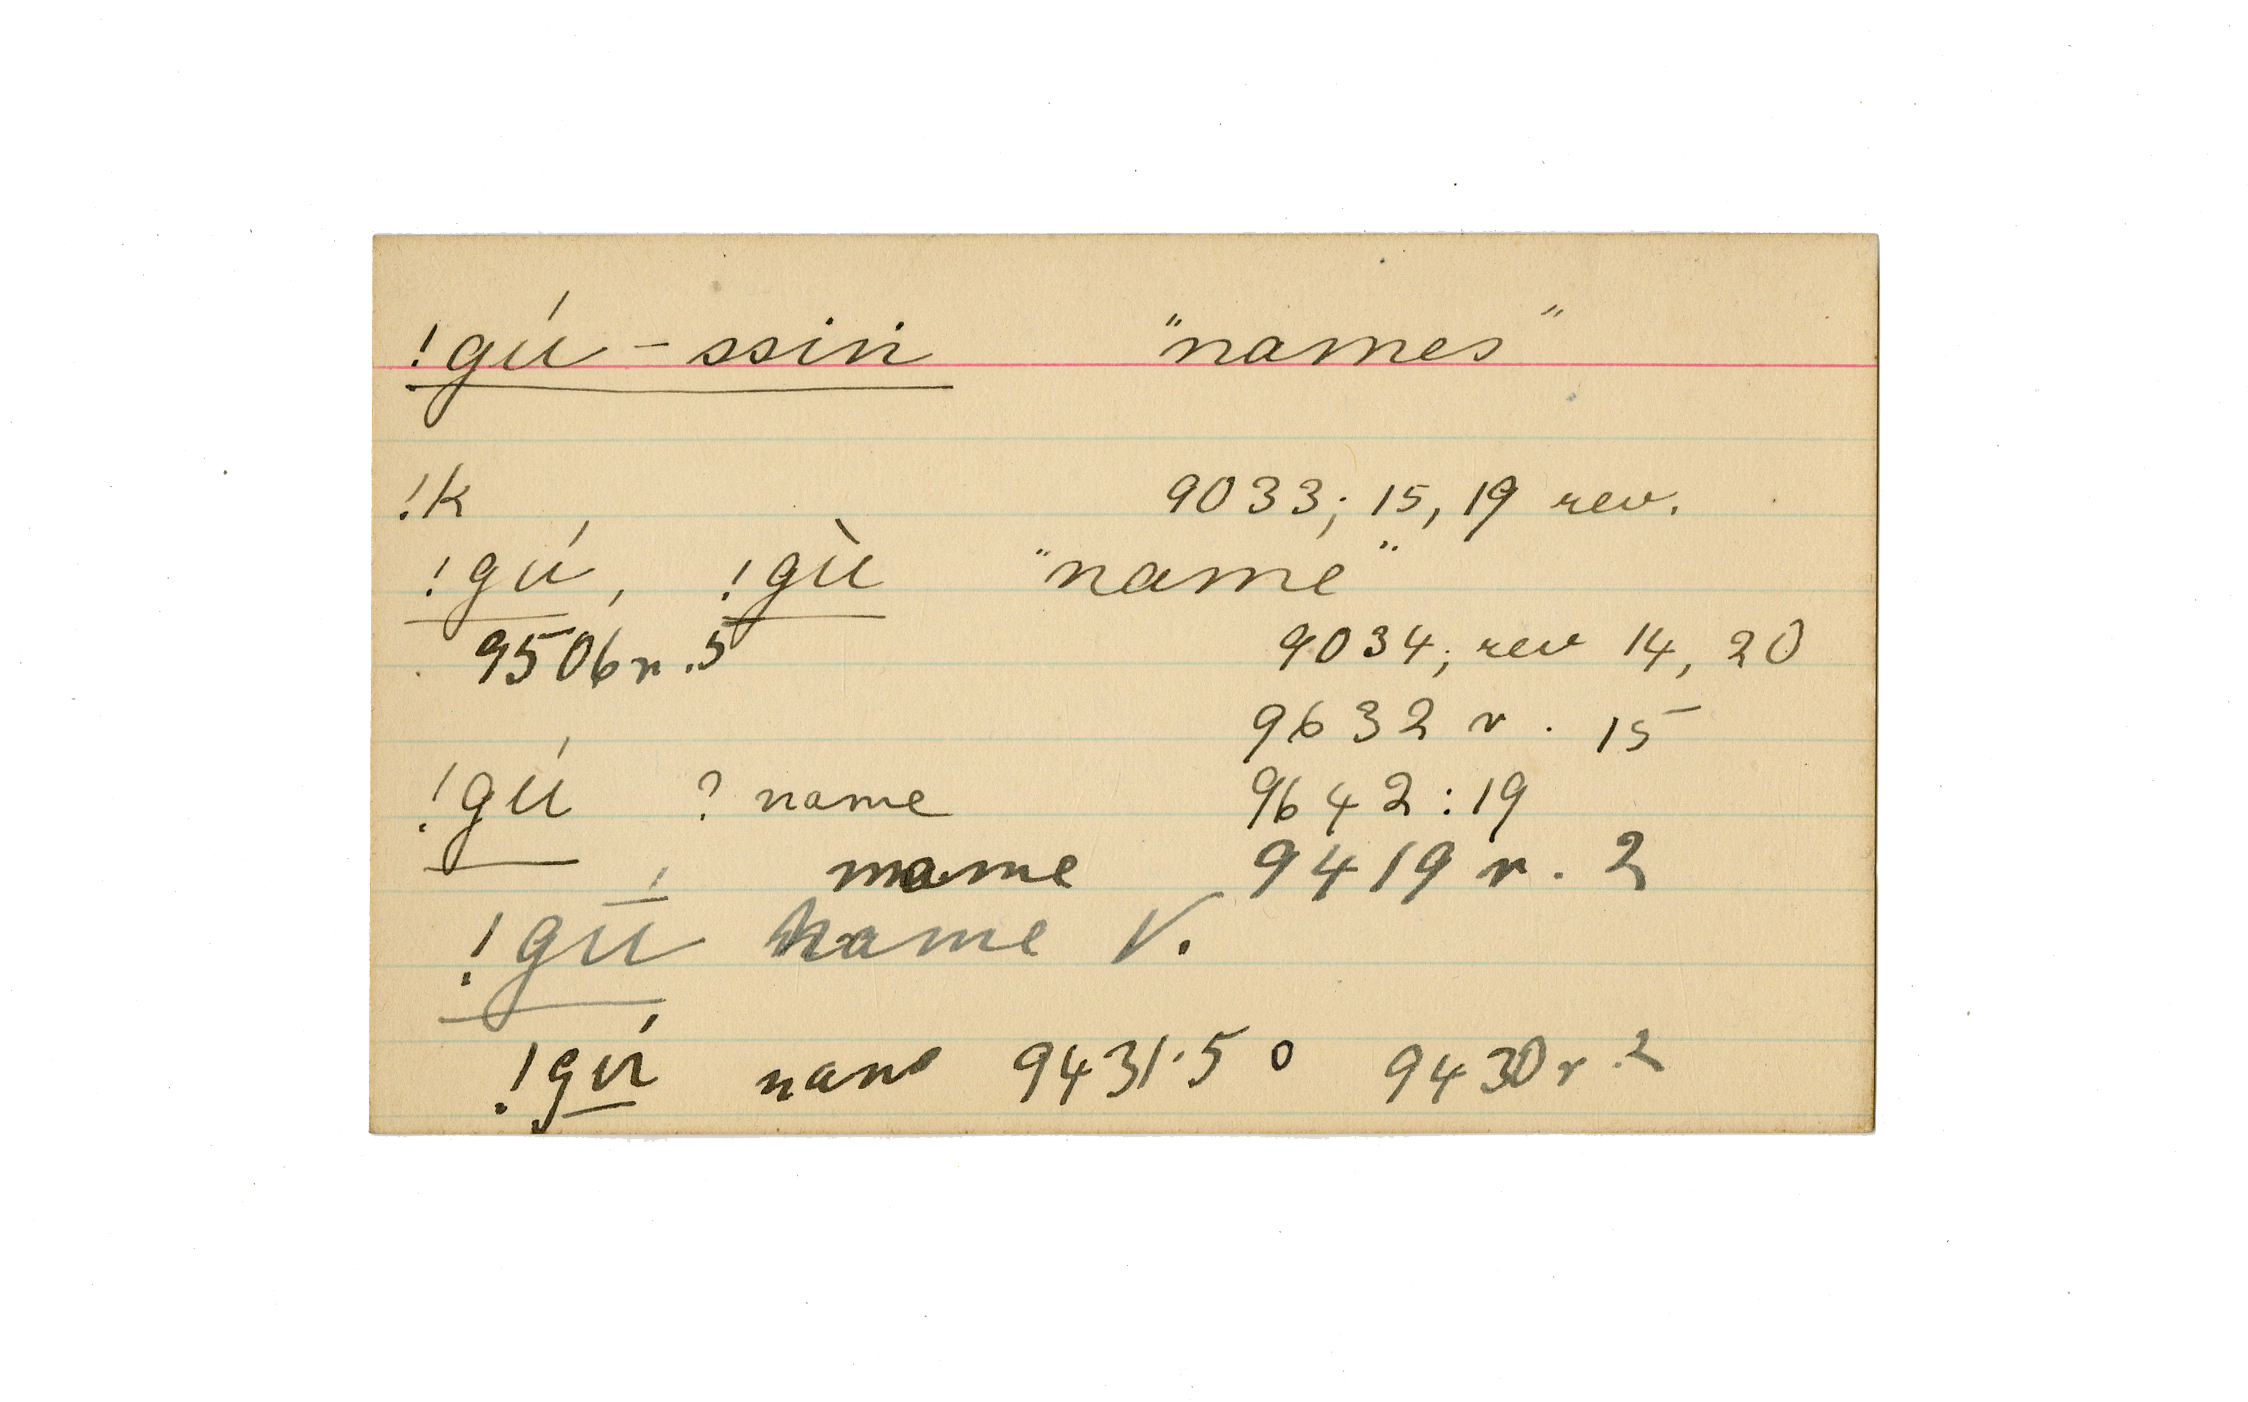 !gú-ssin "names"
!k 9033; 15, 19 rev.
!gú, !gù "name"
9506 r. 5 9034; rev 14, 20
9632 r. 15
!gú ? name 9642:19
name 9419 r. 2
!gū́ name V.
!gú name 9431.50 9430 r. 2